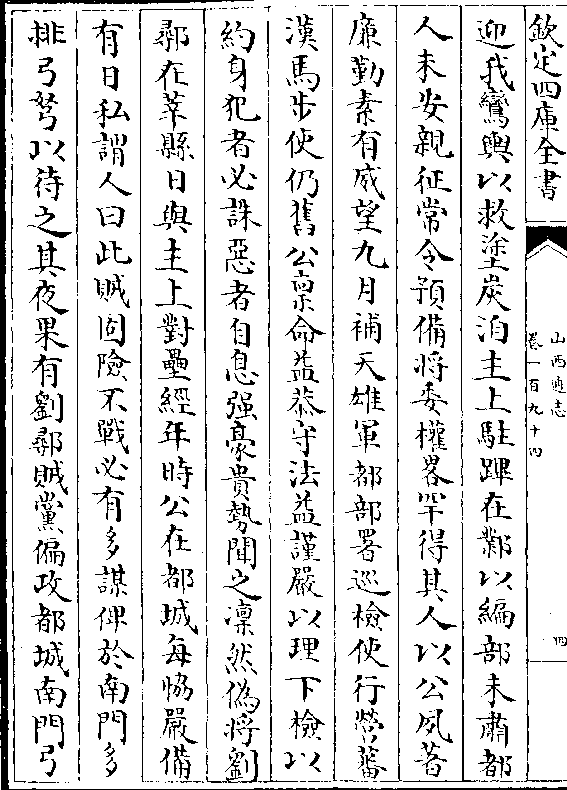 欽定四庫全書
山西通志
卷一百九十四
四
迎我鸞輿以救塗炭洎主上駐蹕在鄴以編部未肅都
人未安親征常令預備將委權畧罕得其人以公夙著
廉勤素有威望九月補天雄軍都部署巡檢使行營蕃
漢馬步使仍舊公禀命益恭守法益謹嚴以理下檢以
約身犯者必誅惡者自息强豪貴勢聞之凜然偽將劉
鄩在莘縣日與主上對壘經年時公在都城每恊嚴備
有日私謂人曰此賊固險不戰必有多謀俾於南門多
排弓弩以待之其夜果有劉鄩賊黨偏攻都城南門弓